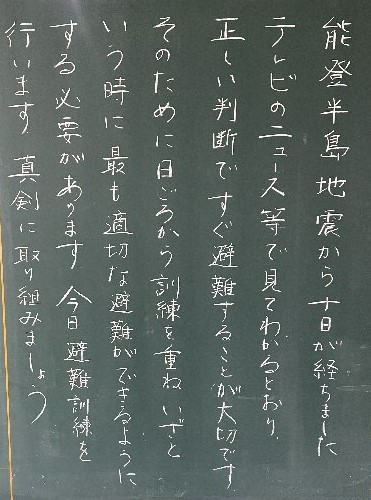 能登半島地震から十日が経ちました
テレビのニュース等で見てわかるとおり
正しい判断ですぐ避難することが大切です
そのために日ごろから訓練を重ねいざと
いう時に最も適切な避難ができるように
する必要があります今日避難訓練を
行います真剣に取り組みましょう